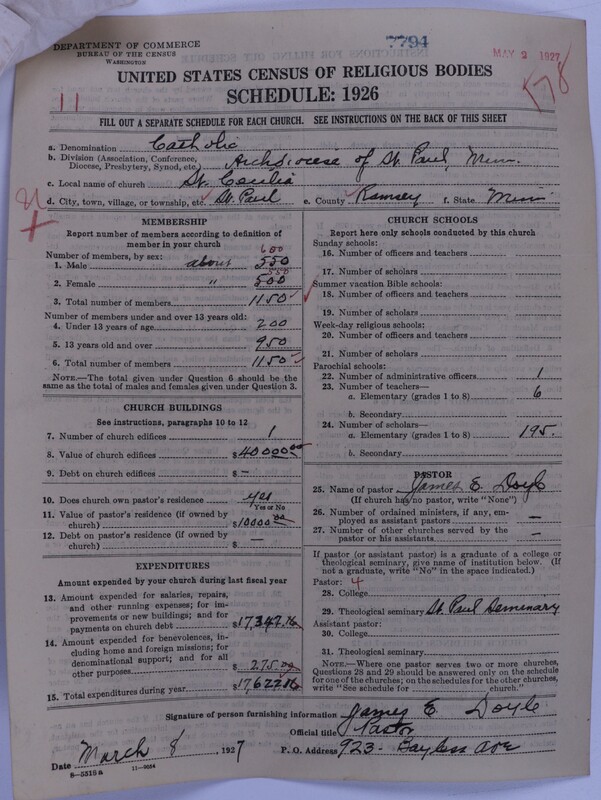 7794
MAY 2 1927
178
DEPARTMENT OF COMMERCE
BUREAU OF THE CENSUS
WASHINGTON
UNITED STATES CENSUS OF RELIGIOUS BODIES
SCHEDULE: 1926
11
FILL OUT A SEPARATE SCHEDULE FOR EACH CHURCH. SEE INSTRUCTIONS ON THE BACK OF THIS SHEET
a. Denomination Catholic
b. Division (Association, Conference, Diocese, Presbytery, Synod, etc.) Archdiocese of St. Paul, Minn.
c. Local name of church St. Cecilia
d. City, town, village, or township, etc. St. Paul e. County Ramsey f. State Minn
MEMBERSHIP
Report number of members according to definition of
member in your church
Number of members, by sex: 600
1. Male about 550
550
2. Female " 500
3. Total number of members 1150
Number of members under and over 13 years old:
4. Under 13 years of age 200
5. 13 years old and over 950
6. Total number of members 1150
NOTE.—The total given under Question 6 should be
same as the total of males and females given under Question 3.
CHURCH BUILDINGS
See instructions, paragraphs 10 to 12
7. Number of church edifices 1
8. Value of church edifices $40000.00
9. Debt on church edifices $ -
10. Does church own pastor's residence yes
Yes or No
11. Value of pastor's residence (if owned by
church) $10000.00
12. Debt on pastor's residence (if owned by
church) $ -
EXPENDITURES
Amount expended by your church during last fiscal year
13. Amount expended for salaries, repairs,
and other running expenses; for im-
provements or new buildings; and for
payments on church debt $17,347.16
14. Amount expended for benevolences, in-
cluding home and foreign missions; for
denominational support; and for all
other purposes $275.00
15. Total expenditures during year $17622.16
CHURCH SCHOOLS
Report here only schools conducted by this church
Sunday schools:
16. Number of officers and teachers
17. Number of scholars
Summer vacation Bible schools:
18. Number of officers and teachers
19. Number of scholars
Week-day religious schools:
20. Number of officers and teachers
21. Number of scholars
Parochial schools:
22. Number of administrative officers 1
23. Number of teachers—
a. Elementary (grades 1 to 8) 6
b. Secondary
24. Number of scholars—
a. Elementary (grades 1 to 8) 195.
b. Secondary
PASTOR
25. Name of pastor James E. Doyle
(If church has no pastor, write "None")
26. Number of ordained ministers, if any, em-
ployed as assistant pastors -
27. Number of other churches served by the
pastor or his assistants -
If pastor (or assistant pastor) is a graduate of a college or
theological seminary, give name of institution below. (If
not a graduate, write "No" in the space indicated.)
Pastor: 4
28. College
29. Theological seminary St. Paul Seminary
Assistant pastor:
30. College
31. Theological seminary
NOTE.—Where one pastor serves two or more churches,
Questions 28 and 29 should be answered only on the schedule
for one of the churches; on the schedules for the other churches,
write "See schedule for church."
Signature of person furnishing information James E. Doyle
Official title Pastor
Date March 8, 1927 P. O. Address 923 - Bayless Ave
8—5518 a 11—9664